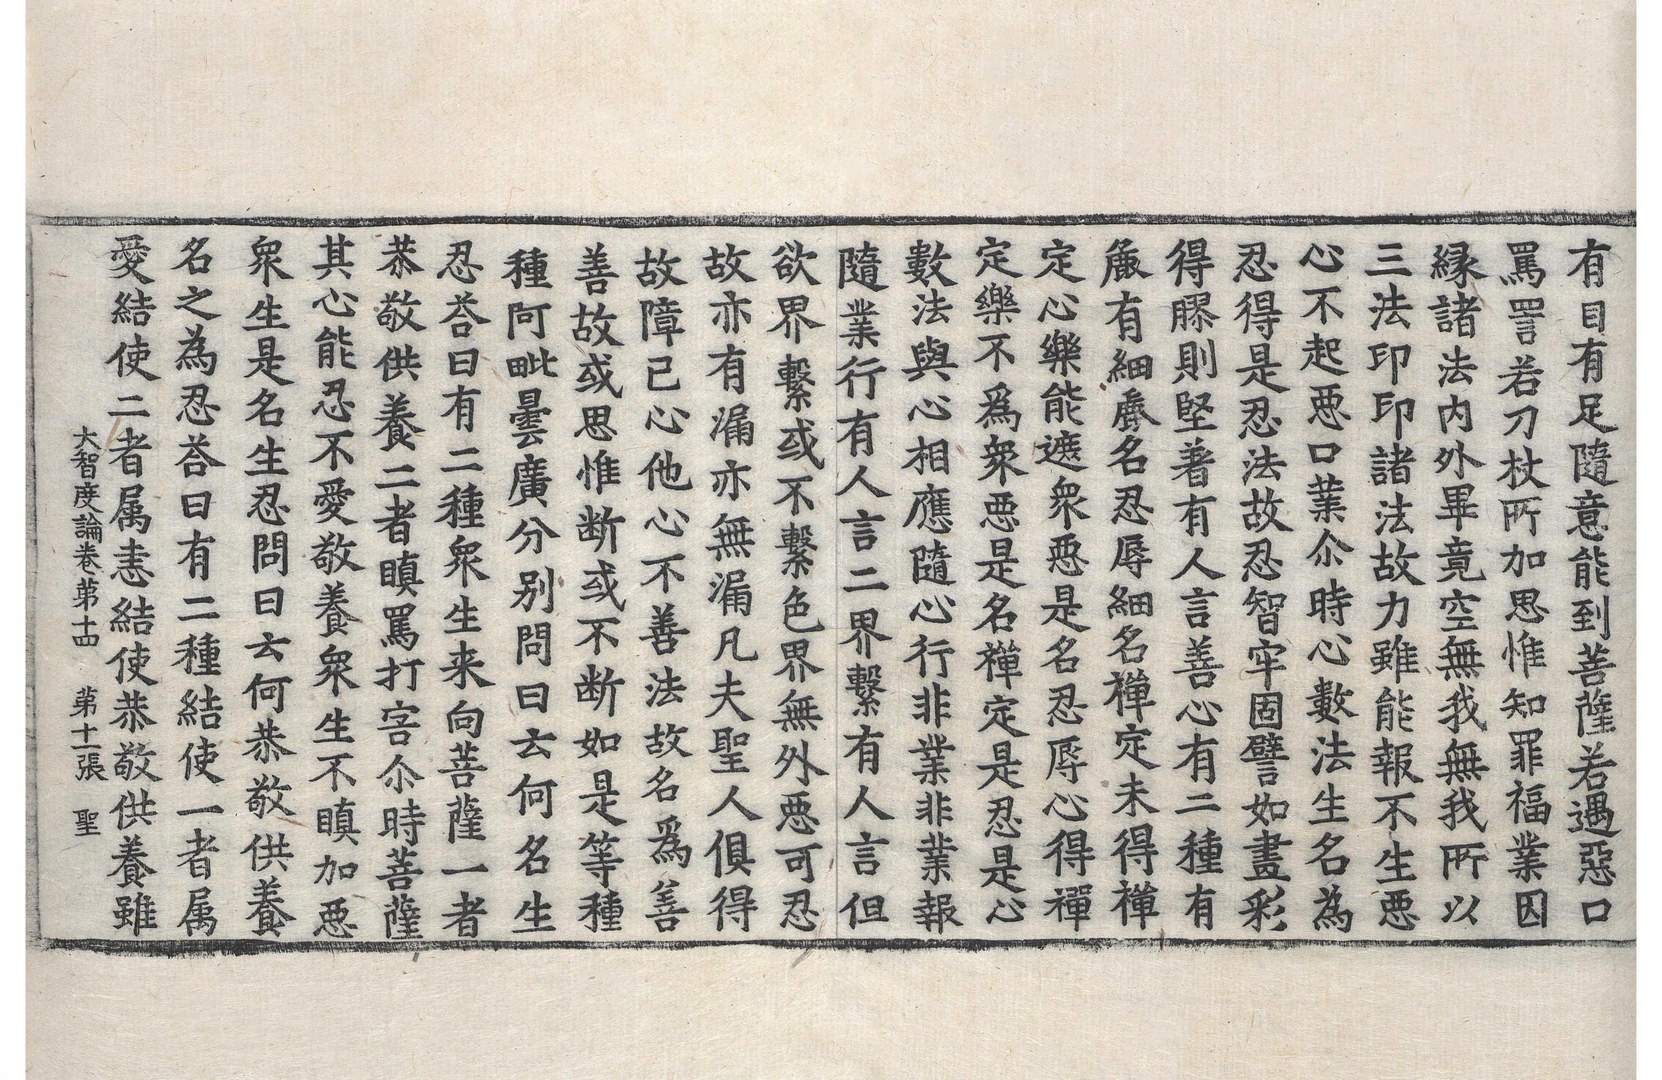 有目有足隨意能到菩薩若遇惡口
罵詈若刀杖所加思惟知罪福業因
縁諸法内外畢竟空無我無我所以
三法印印諸法故力雖能報不生悪
心不起悪口業尒時心數法生名為
忍得是忍法故忍智牢固譬如畫彩
得膠則堅著有人言善心有二種有
麁有細麁名忍辱細名禪定未得禪
定心樂能遮衆悪是名忍辱心得禪
定樂不爲衆悪是名禪定是忍是心
數法與心相應隨心行非業非業報
隨業行有人言二界繫有人言但
欲界繫或不繫色界無外悪可忍
故亦有漏亦無漏凡夫聖人俱得
故障己心他心不善法故名爲善
善故或思惟断或不断如是等種
種阿毗曇廣分别問曰云何名生
忍荅曰有二種衆生来向菩薩一者
恭敬供養二者瞋罵打害尒時菩薩
其心能忍不愛敬養衆生不瞋加悪
衆生是名生忍問曰云何恭敬供養
名之為忍荅曰有二種結使一者属
愛結使二者属恚結使恭敬供養雖
大智度論卷苐十四 苐十一張 聖